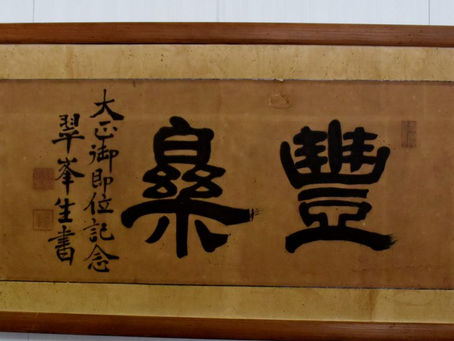 豐樂
大正御即位記念
翠峯生書